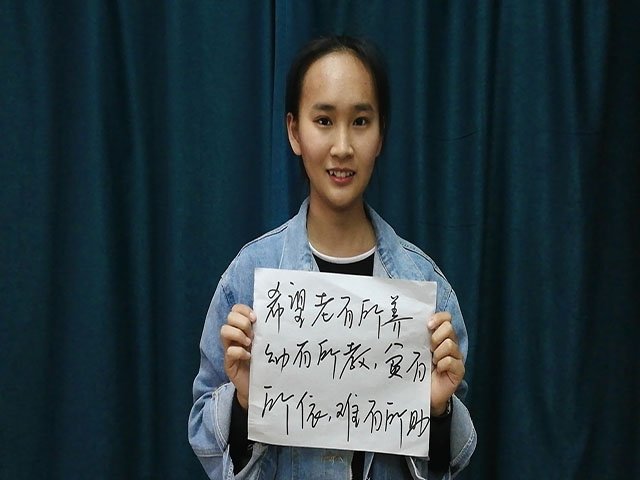 希望老有所养
幼有所教,贫有
所依,难有所助